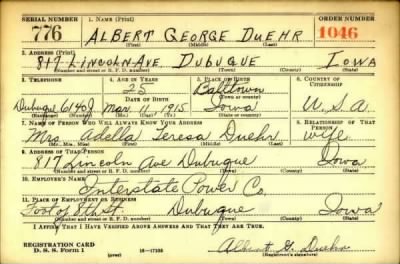 SERIAL NUMBER 1. NAME (Print) ORDER NUMBER
776 ALBERT GEORGE DUEHR 1046
(First) (Middle) (Last)
2. ADDRESS (Print)
817 LINCOLN AVE DUBUQUE IOWA
(Number and street or R. F. D. number) (Town) (County) (State)
3. TELEPHONE 4. AGE IN YEARS 5. PLACE OF BIRTH 6. COUNTRY OF CITIZENSHIP
25 Balltown
DATE OF BIRTH (Town or county)
Dubuque 6140J Mar. 11, 1915 Iowa U.S.A.
(Exchange) (Number) (Mo.) (Day) (Yr.) (State or country)
7. NAME OF PERSON WHO WILL ALWAYS KNOW YOUR ADDRESS 8. RELATIONSHIP OF THAT PERSON
Mrs. Adella Teresa Duehr wife
(Mr., Mrs., Miss) (First) (Middle) (Last)
9. ADDRESS OF THAT PERSON
817 Lincoln Ave Dubuque Iowa
(Number and street or R. F. D. number) (Town) (County) (State)
10. EMPLOYER'S NAME
Interstate Power Co.
11. PLACE OF EMPLOYMENT OR BUSINESS
Foot of 8th St. Dubuque Iowa
(Number and street or R. F. D. number) (Town) (County) (State)
I AFFIRM THAT I HAVE VERIFIED ABOVE ANSWERS AND THAT THEY ARE TRUE.
REGISTRATION CARD
D. S. S. Form 1 (over) Albert G. Duehr
(Registrant's signature)